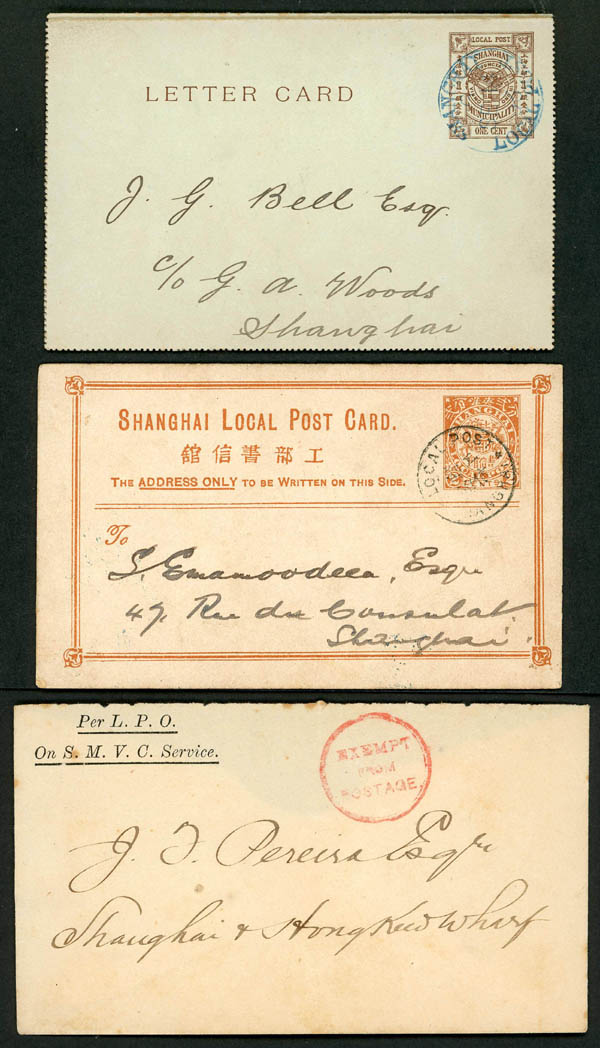 LOCAL POST
SHANGHAI
MUNICIPALITY
ONE CENT
LOCAL
LETTER CARD
J. G. Bell Esq.
c/o G. A. Woods
Shanghai
SHANGHAI LOCAL POST CARD.
工部書信館
THE ADDRESS ONLY TO BE WRITTEN ON THIS SIDE.
SHANGHAI
LOCAL POST
To
S. Emamoodeen, Esqre
47, Rue du Consulat
Shanghai.
Per L. P. O.
On S. M. V. C. Service.
EXEMPT
FROM
POSTAGE
J. F. Pereira Esqre
Shanghai & HongKew Wharf